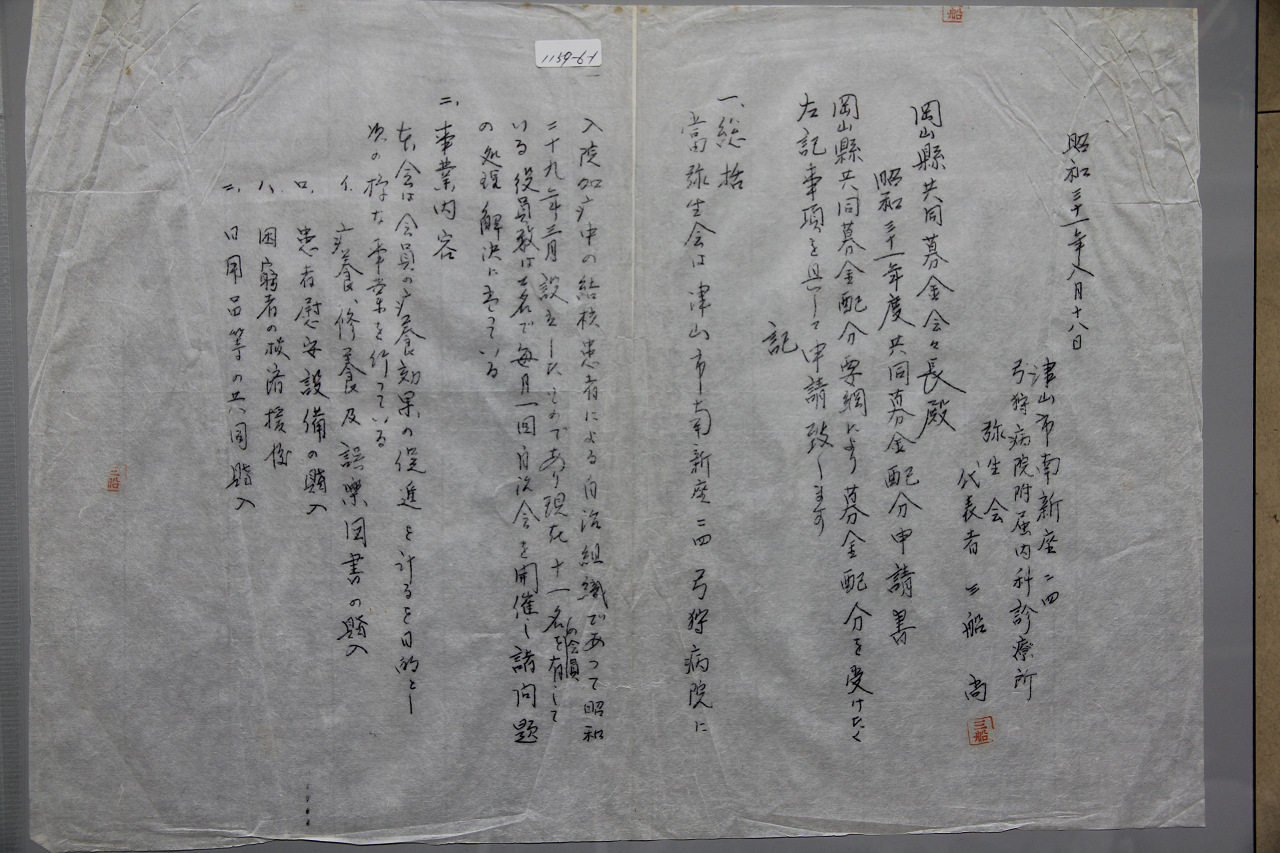 1159-61
昭和三十一年八月十八日
津山市南新座二四
弓狩病院附属内科診療所
弥生会
代表者 三船 尚
三船
岡山縣共同募金会々長殿
昭和三十一年度共同募金配分申請書
岡山縣共同募金配分要綱により募金配分を受けたく
左記事項を具して申請致します
記
一、総括
當弥生会は津山市南新座二四弓狩病院に
入院加療中の結核患者による自治組織であって昭和
二十九年三月設立したものであり現在十一名の会員を有して
いる 役員数は 名で毎月一回自治会を開催し諸問題
の処理解決に当っている
二、事業内容
本会は会員の療養効果の促進を計るを目的とし
次の様な事業を行っている
イ、療養、修養及誤樂図書の購入
ロ、患者慰安設備の購入
ハ、困窮者の救済援護
ニ、日用品等の共同購入
三船
三船